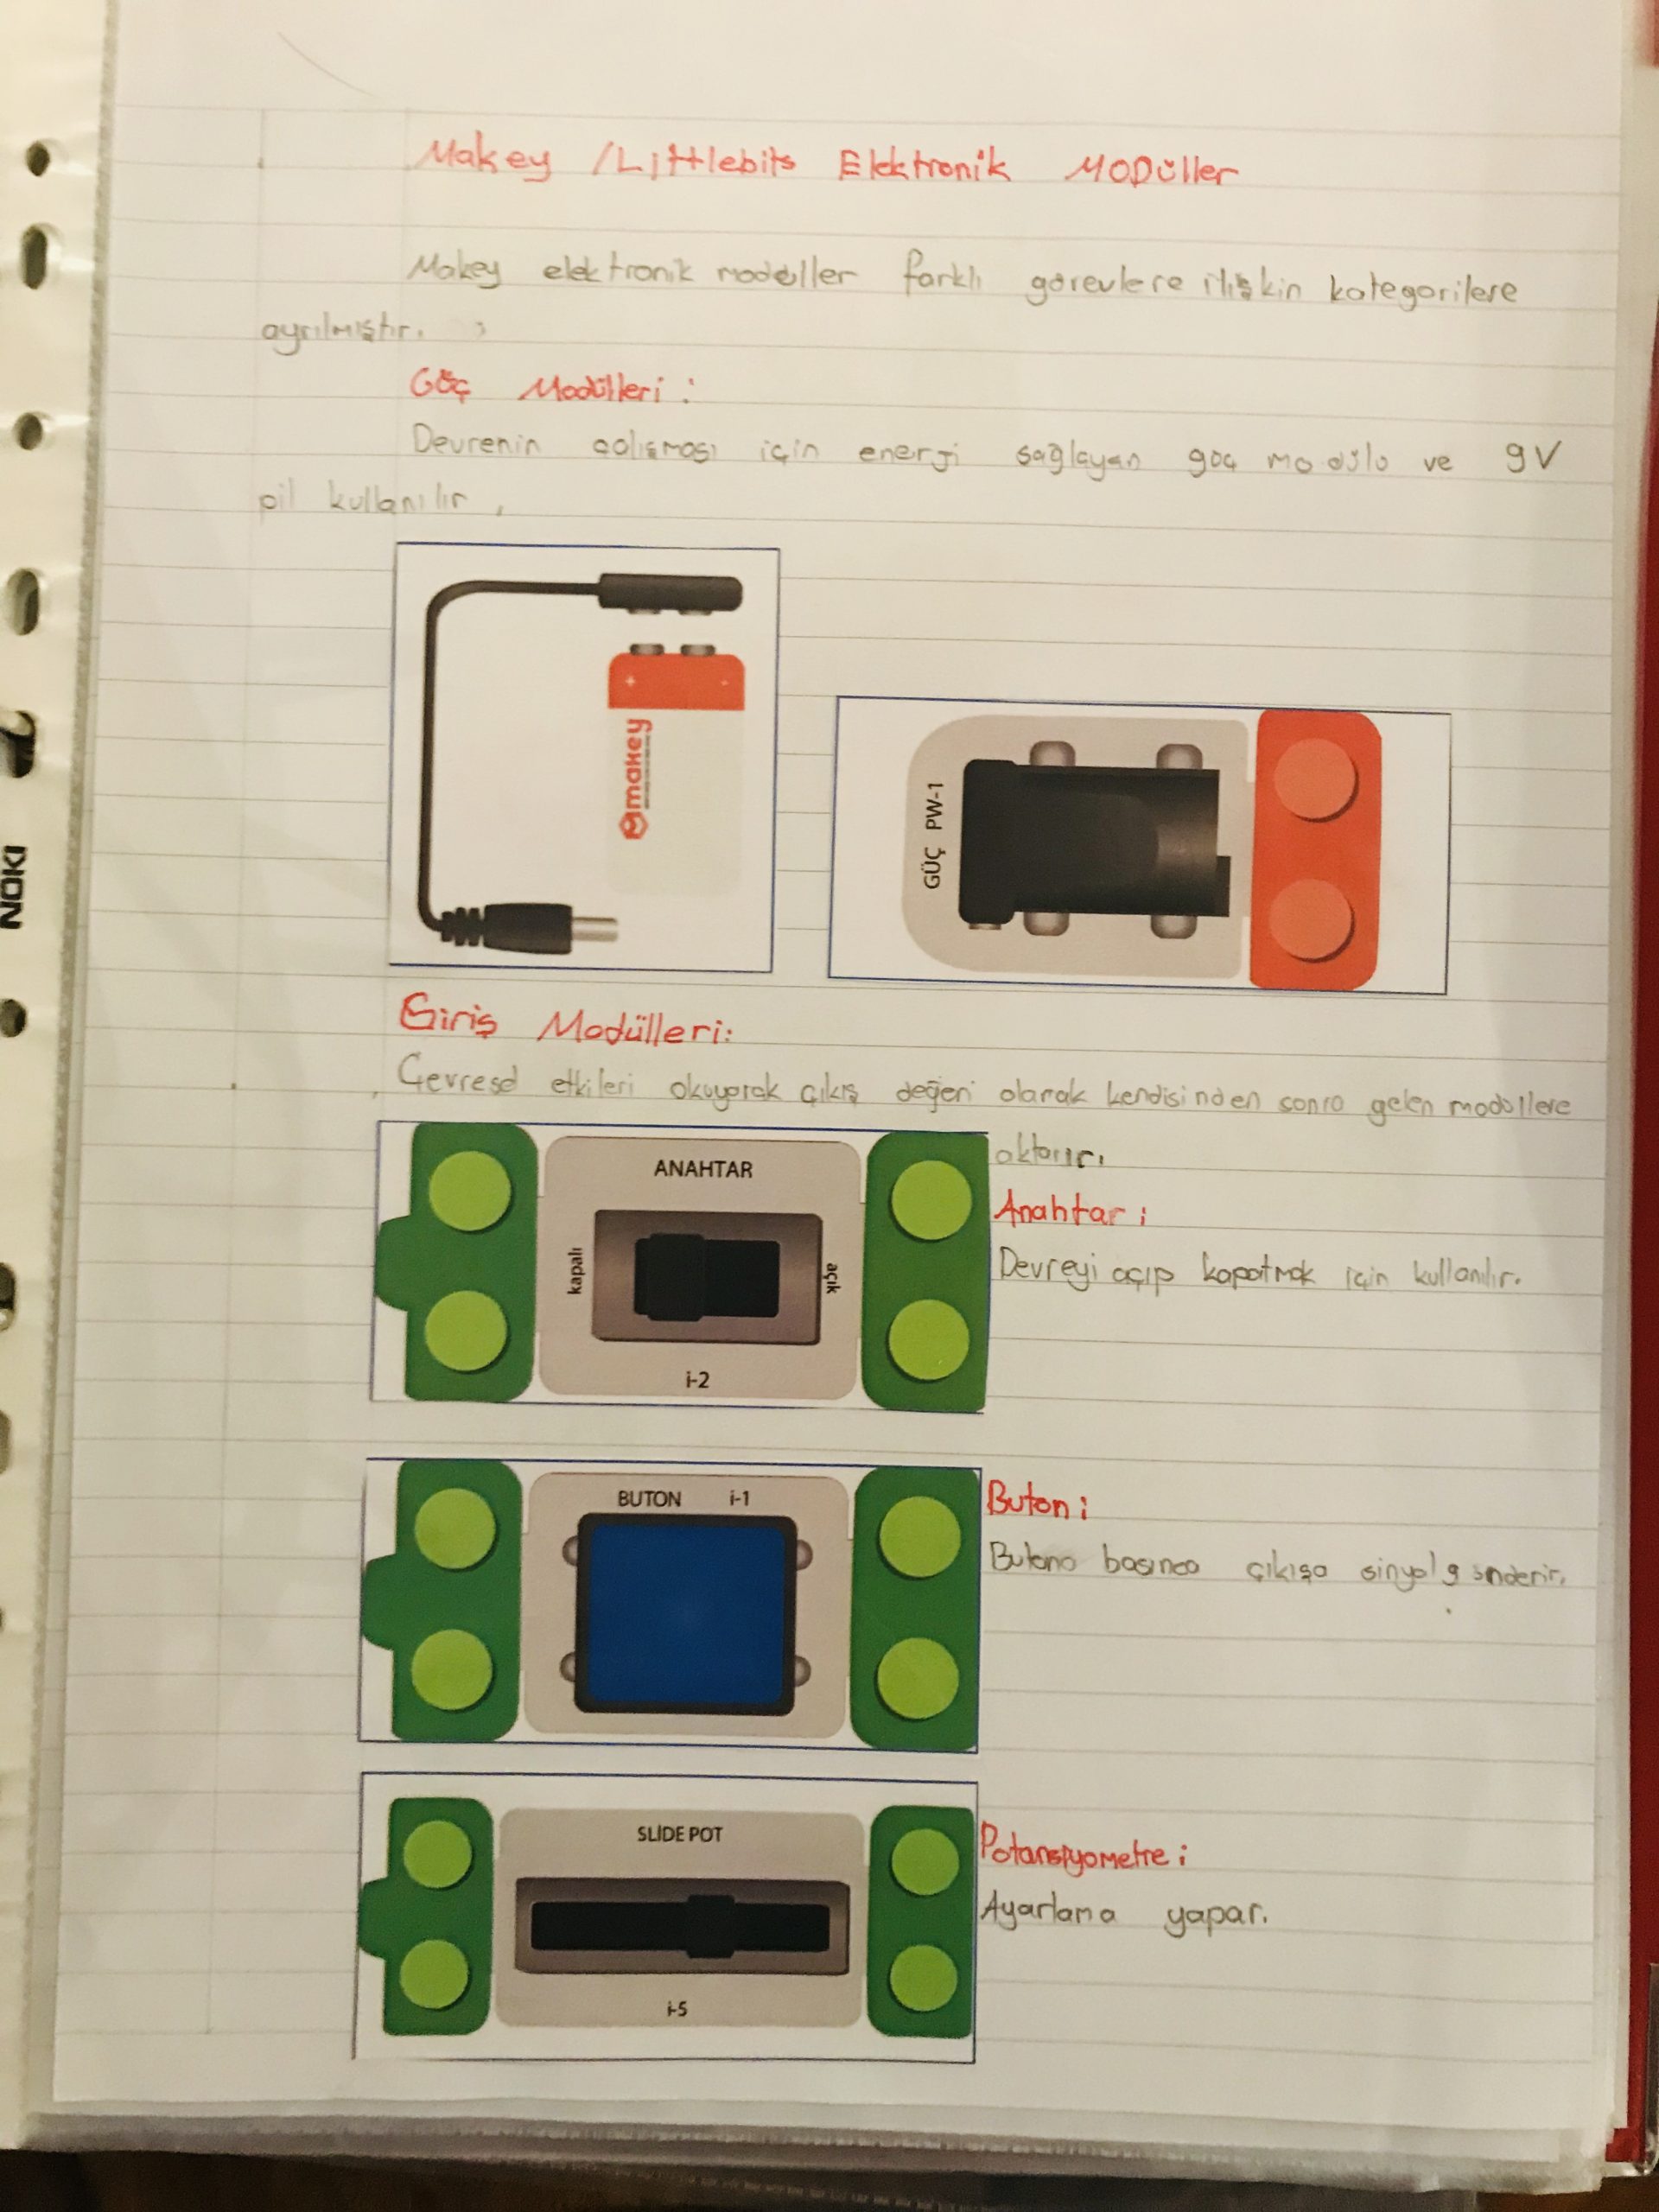 Makey /Littlebits Elektronik MODüller
Makey elektronik modüller farklı görevlere ilişkin kategorilere
ayrılmıştır.
Güç Modülleri :
Devrenin çalışması için enerji sağlayan güç modülü ve 9V
pil kullanılır.
+ -
makey
GÜÇ PW-1
Giriş Modülleri:
Çevresel etkileri okuyarak çıkış değeri olarak kendisinden sonra gelen modüllere
aktarır.
ANAHTAR
kapalı
açık
i-2
Anahtar :
Devreyi açıp kapatmak için kullanılır.
BUTON i-1
Buton :
Butona basınca çıkışa sinyal gönderir.
SLIDE POT
i-5
Potansiyometre :
Ayarlama yapar.
NOKI